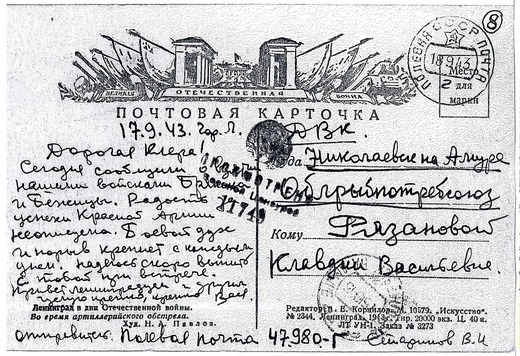 8
ПОЛЕВАЯ ПОЧТА СССР
18 9 43
2
Место
для
марки
ВЕЛИКАЯ
ОТЕЧЕСТВЕННАЯ
ВОЙНА
ПОЧТОВАЯ КАРТОЧКА
17.9.43. гор. Л.
Дорогая Клера!
Сегодня сообщили
нашими войсками
и Бежицы. Радость
успехи Красной Армии
Боевой дух
и порыв крепнет с каждым
днем. Надеюсь скоро
с тобой при встрече.
Привет
крепко, крепко Вас.
ПРОСМОТРЕНО
Военной Цензурой
11749
ДВК.
Куда
Николаевск на Амуре
Облрыбпотребсоюз
Кому
Рязановой
Клавдии Васильевне
Ленинград в дни Отечественной войны.
Во время артиллерийского обстрела.
Худ. Н. А. Павлов.
Редактор В. Е. Корнилов. М. 10579. „Искусство".
№ 2344. Ленинград, 1943 г. Тир. 20000 экз. Ц. 40 к.
ЛТ УН-1. Заказ № 3273
Отправитель: Полевая почта 47.980-Г
В. И